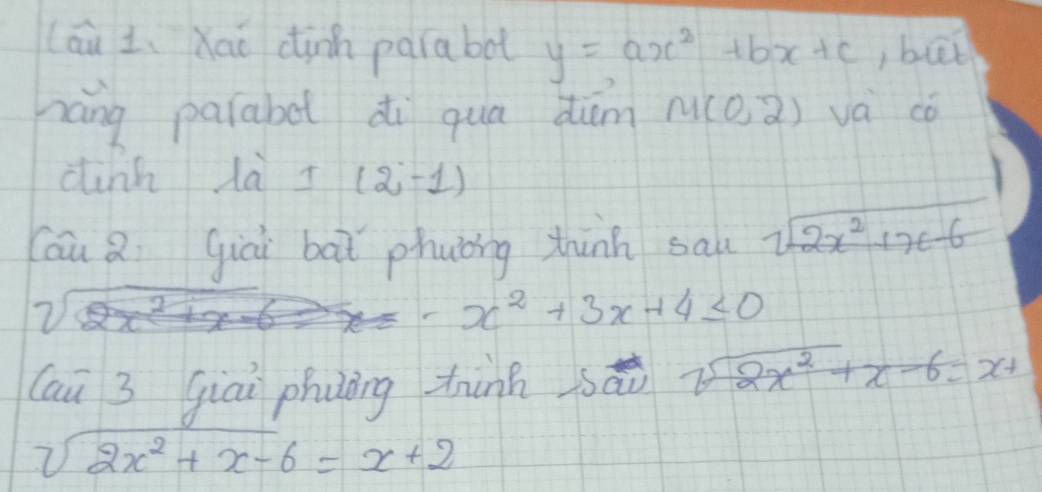 Câu 1. Xác định parabol y = ax² + bx + c, biết
rằng parabol đi qua điểm M(0,2) và có
đỉnh là I (2;-1)
Câu 2: Giải bất phương trình sau √2x² + x - 6
√2x² + x - 6 = x = - x² + 3x + 4 ≤ 0
Câu 3 Giải phương trình sau √2x² + x - 6 = x +
√2x² + x - 6 = x + 2